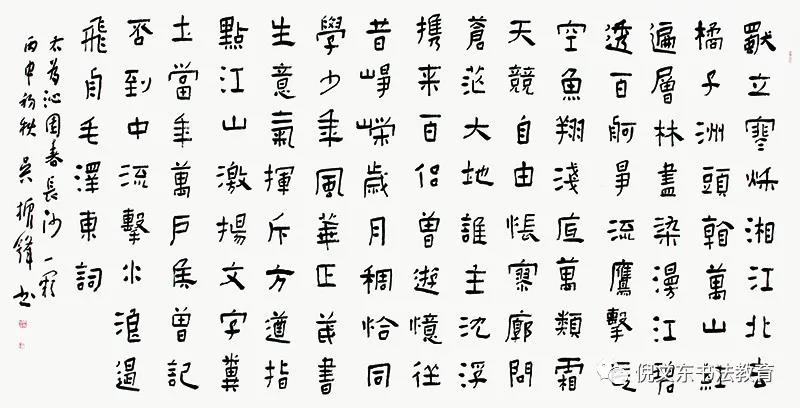 獨立寒秋湘江北去
橘子洲頭看萬山紅
遍層林盡染漫江碧
透百舸爭流鷹擊長
空魚翔淺底萬類霜
天競自由悵寥廓問
蒼茫大地誰主沈浮
携来百侣曾遊憶往
昔崢嶸歲月稠恰同
學少年風華正茂書
生意氣揮斥方遒指
點江山激揚文字糞
土當年萬戶侯曾記
否到中流擊水浪遏
飛舟毛澤東詞
右為沁園春長沙一闋
丙申初秋 吳振鋒書
倪文东书法教育